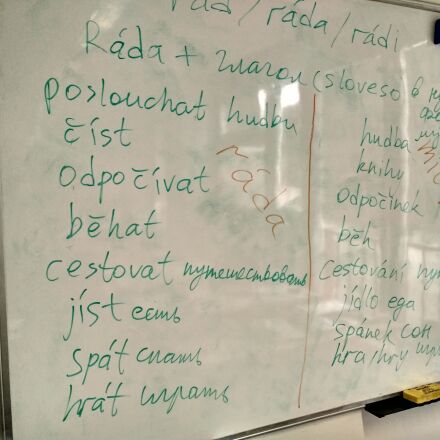 rád / ráda / rádi
Ráda + глагол (sloveso в
poslouchat hudbu
číst
odpočívat
ráda
běhat
cestovat путешествовать
jíst есть
spát спать
hrát играть
hudba
knihu
odpočinek
běh
cestování
jídlo еда
spánek сон
hra/hry